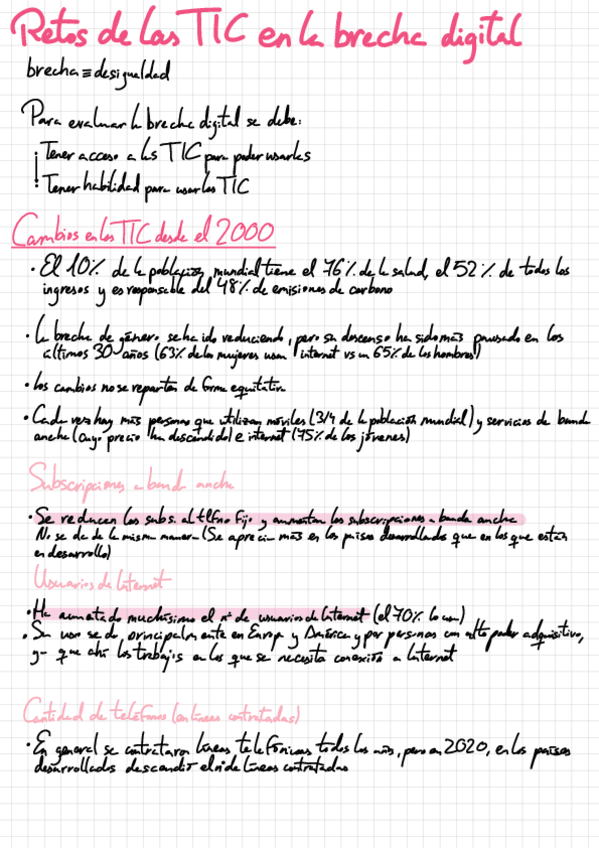 Retos de las TIC en la brecha digital
brecha ≡ desigualdad
Para evaluar la brecha digital se debe:
Tener acceso a las TIC para poder usarlas
Tener habilidad para usar las TIC
Cambios en las TIC desde el 2000
· El 10% de la población mundial tiene el 76% de la salud, el 52% de todos los
ingresos y es responsable del 48% de emisiones de carbono
· La brecha de género se ha ido reduciendo, pero su descenso ha sido más pausado en los
últimos 30 años (63% de las mujeres usan internet vs un 65% de los hombres)
· Los cambios no se reparten de forma equitativa
· Cada vez hay más personas que utilizan móviles (3/4 de la población mundial) y servicios de banda
ancha (cuyo precio ha descendido) e internet (75% de los jóvenes)
Subscripciones a banda ancha
· Se reducen las subs. al tlfno fijo y aumentan las subscripciones a banda ancha
No se da de la misma manera (Se aprecia más en los países desarrollados que en los que están
en desarrollo)
Usuarios de Internet
· Ha aumentado muchísimo el nº de usuarios de Internet (el 70% lo usa)
· Su uso se da principalmente en Europa y América y por personas con alto poder adquisitivo,
ya que ahí los trabajos en los que se necesita conexión a Internet
Cantidad de teléfonos (en líneas contratadas)
· En general se contrataron líneas telefónicas todos los años, pero en 2020, en los países
desarrollados descendió el nº de líneas contratadas